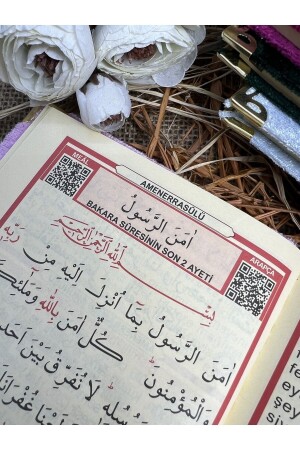 AMENERRASULÜ
MEAL
اٰمَنَ الرَّسُولُ
BAKARA SÛRESİNİN SON 2 AYETİ
ARAPÇA
بِسْمِ اللّٰهِ الرَّحْمٰنِ الرَّحٖيمِ
اٰمَنَ الرَّسُولُ بِمَٓا اُنْزِلَ اِلَيْهِ مِنْ رَبِّهٖ
وَالْمُؤْمِنُونَؕ كُلٌّ اٰمَنَ بِاللّٰهِ
لَا نُفَرِّقُ بَيْنَ اَحَدٍ
غُفْرَانَكَ